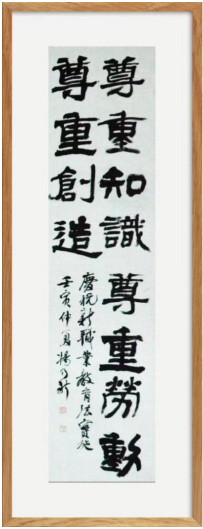 尊重知識尊重勞動
尊重創造
慶祝新職業教育法實施
壬寅仲夏楊乃